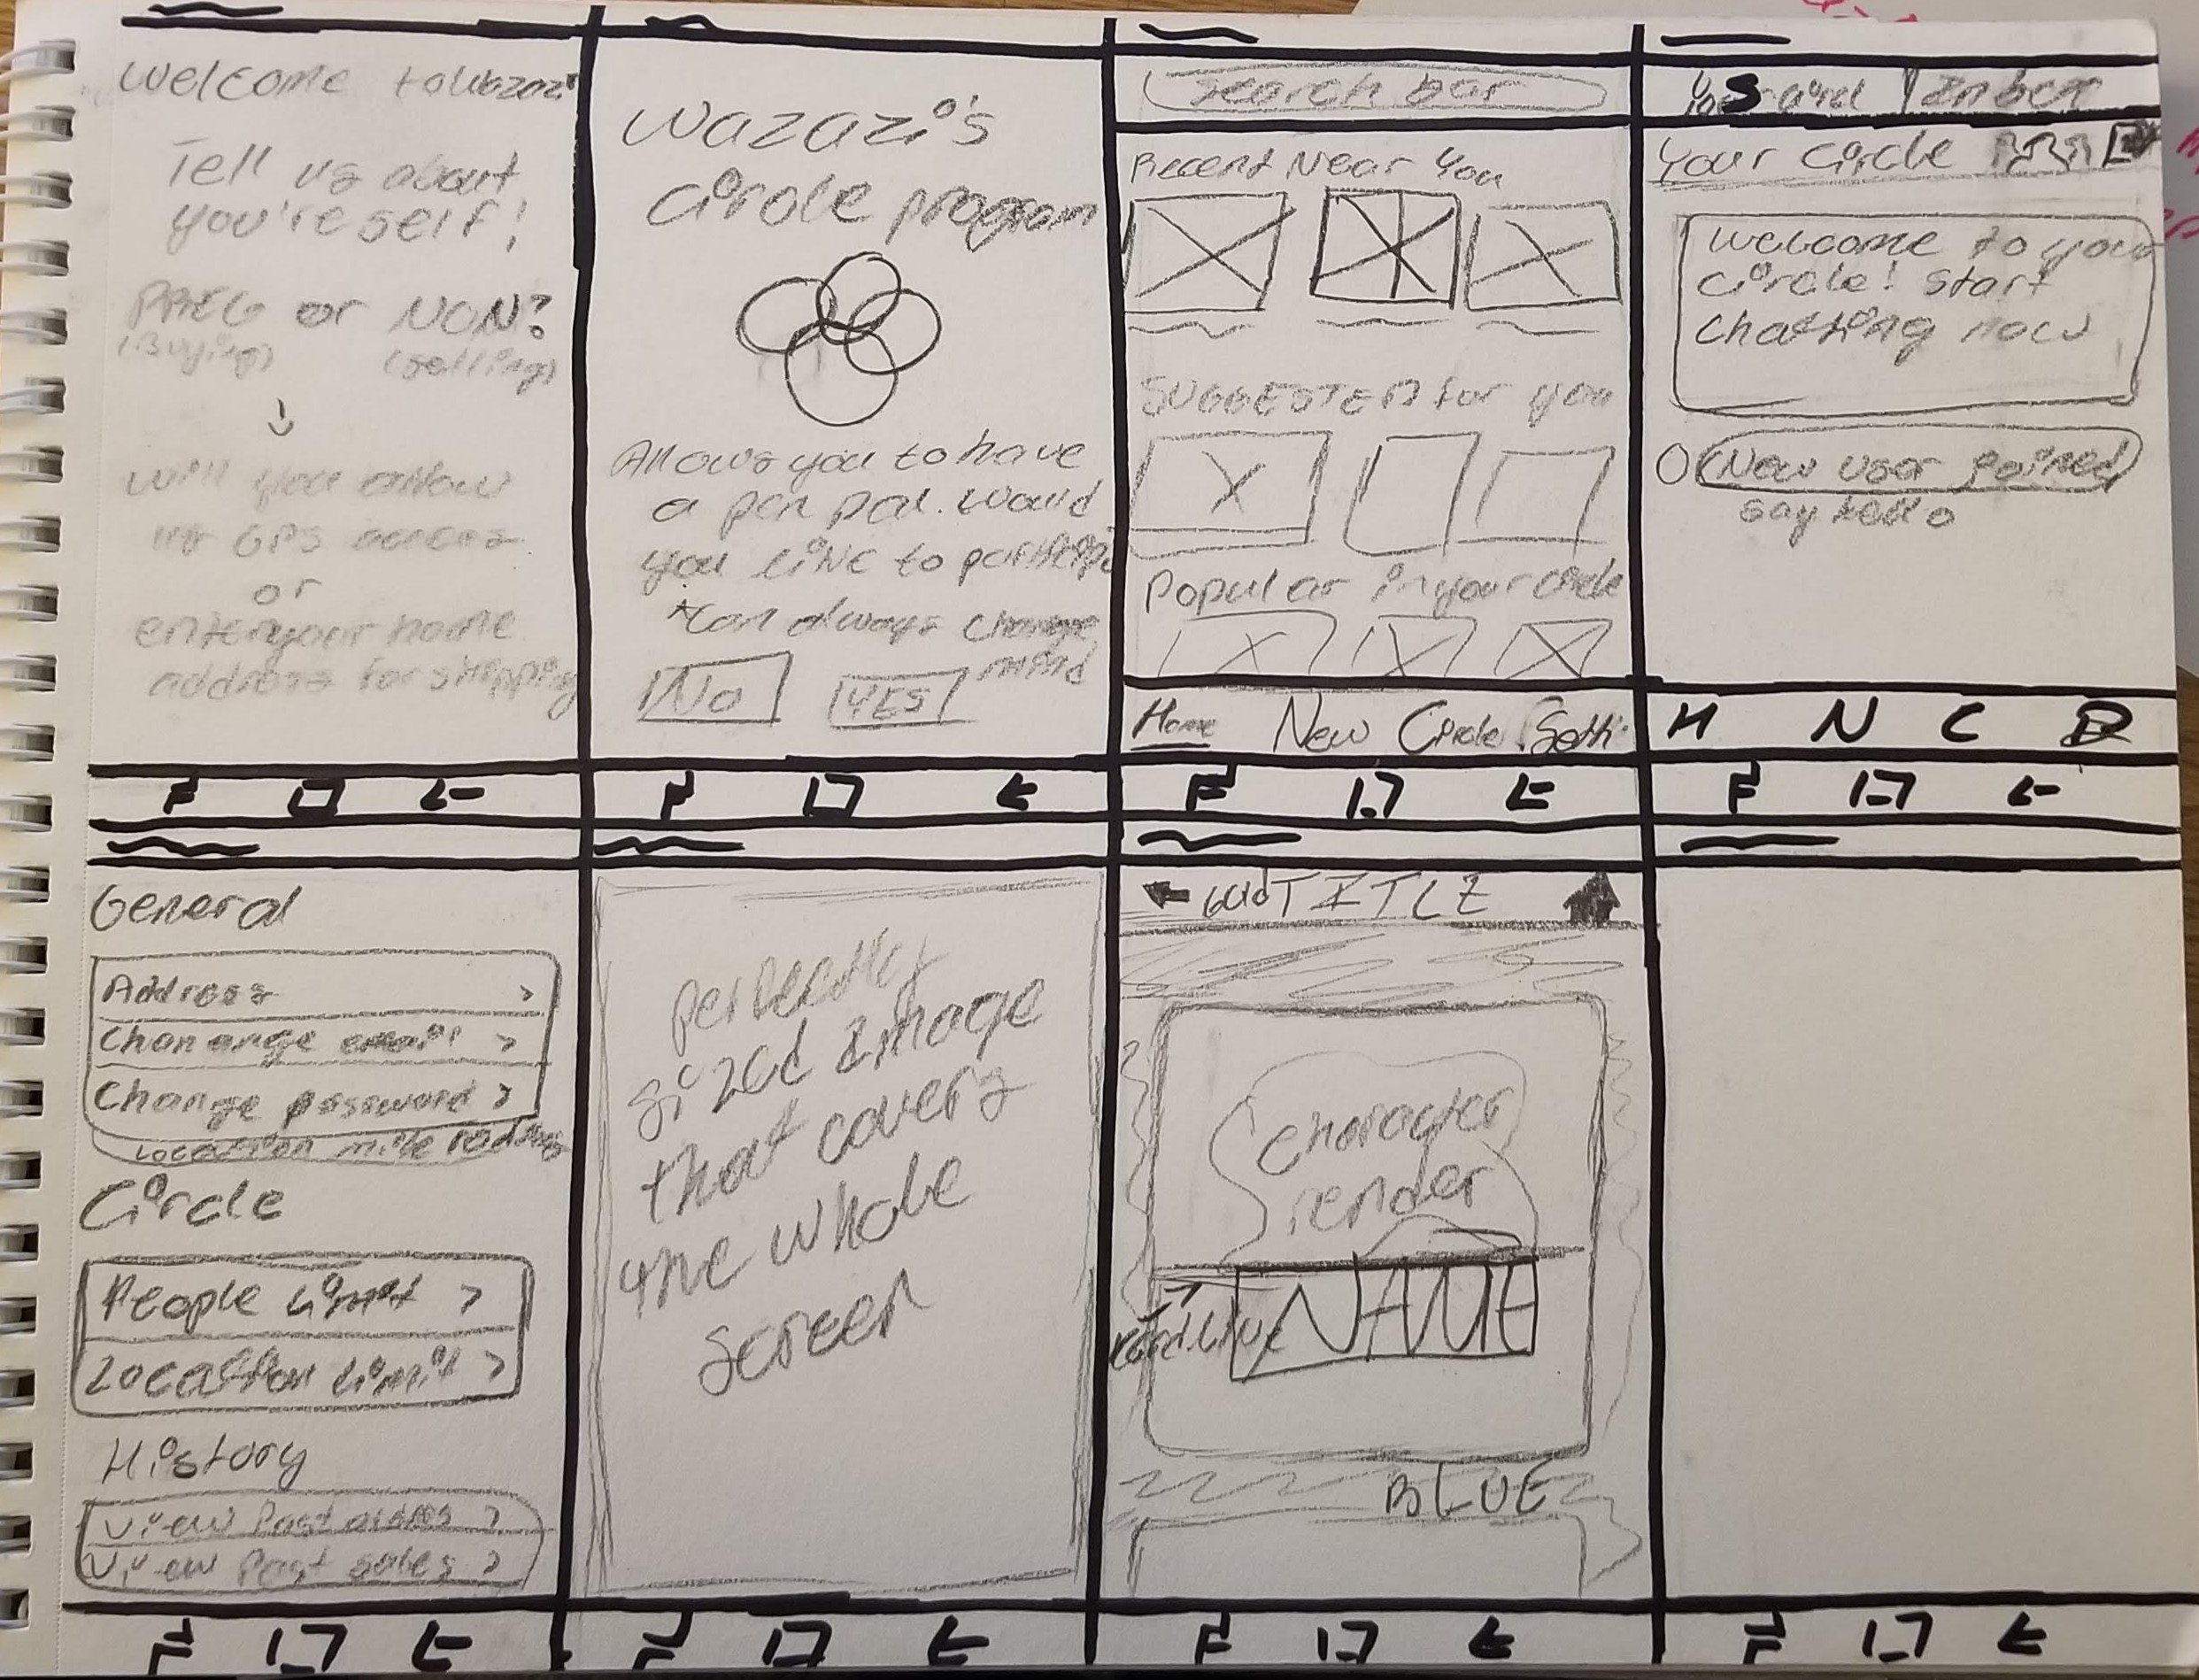 Welcome to Wazazi
Tell us about
you're self!
PREG or NON?
(Buying) (selling)
will you allow
us GPS access
or
enter your home
address for shipping
Wazazi's
Circle program
Allows you to have
a pen pal. Would
you like to
*Can always change
mind
No YES
Search bar
Recent Near You
SUGGESTED for you
Popular in your circle
Home New Circle Setti
Inbox
Your Circle
Welcome to your
Circle! Start
Chatting now
New user joined
say hello
H N C
General
Address >
Chanange email >
Change password >
Location mile radius
Circle
People Limit >
Location Limit >
History
View Past >
View Past sales >
perfectly
sized image
that covers
the whole
screen
TITLE
Character
render
NAME
BLUE